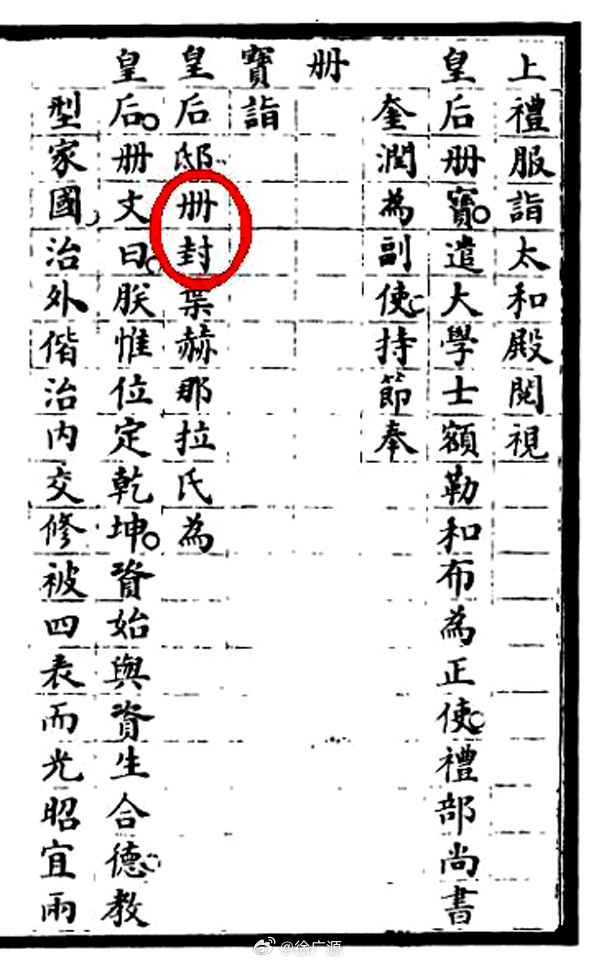 上禮服詣太和殿閱視
皇后册寶。遣大學士額勒和布為正使。禮部尚書
奎潤為副使。持節奉
册
寶詣
皇后邸册封葉赫那拉氏為
皇后。册文曰。朕惟位定乾坤。資始與資生合德。教
型家國、治外偕治內交修被四表而光昭宜兩
@徐广源